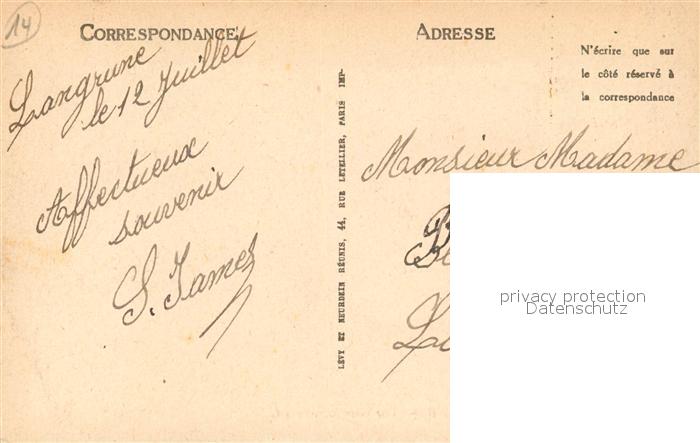 14
CORRESPONDANCE
Langrune
le 12 Juillet
Affectueux
souvenir
S. James
LÉVY ET NEURDEIN RÉUNIS, 44, RUE LETELLIER, PARIS IMP-
ADRESSE
N'écrire que sur
le côté réservé à
la correspondance
Monsieur Madame
privacy protection
Datenschutz